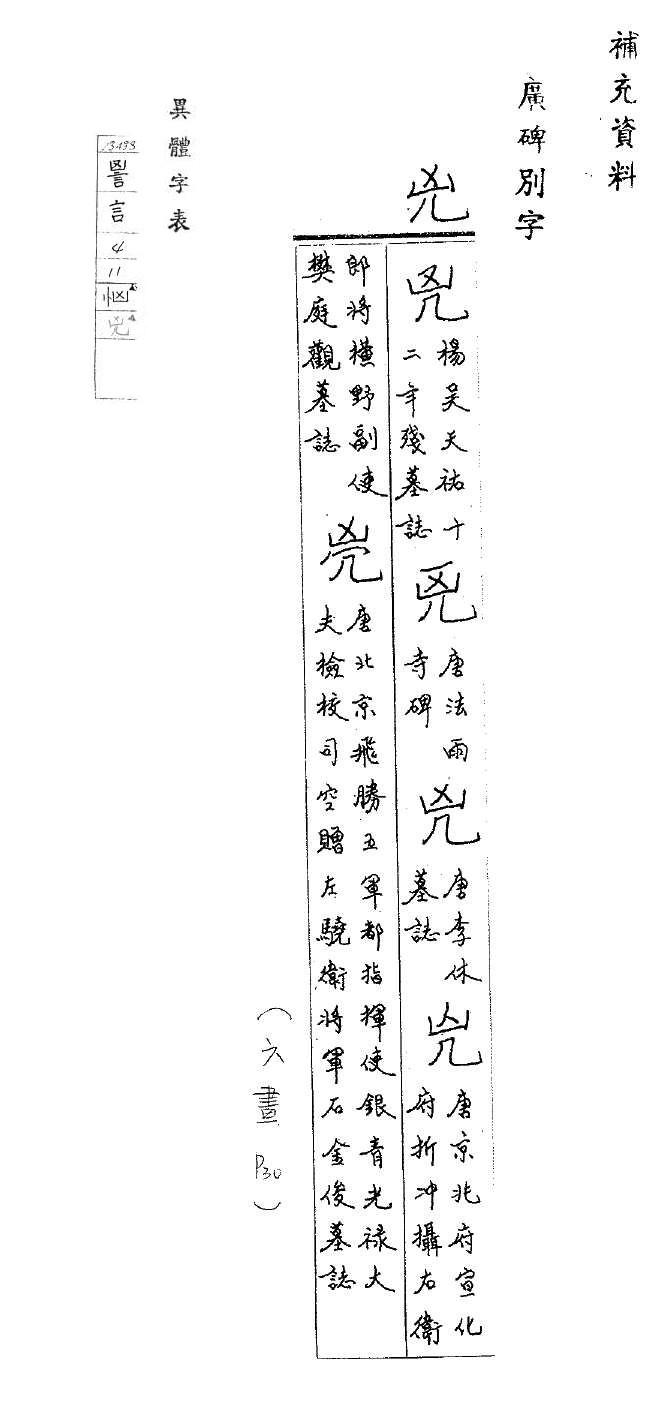 補充資料
廣碑別字
兇
兇
楊吳天祐十
二年殘墓誌
兇
唐法雨
寺碑
兇
唐李休
墓誌
兇
唐京兆府宣化
府折冲攝右衛
郎將橫野副使
樊庭觀墓誌
兇
唐北京飛勝五軍都指揮使銀青光祿大
夫檢校司空贈左驍衛將軍石金俊墓誌
(六畫P30)
異體字表
言
4
11
兇